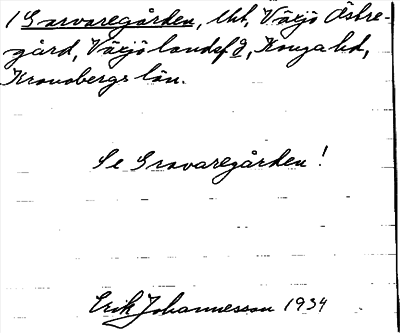 / Garvaregården, lht, Växjö Östre-
gård, Växjö landsf g, Konga hd,
Kronobergs län.
Se Gravaregården!
Erik Johannesson 1934